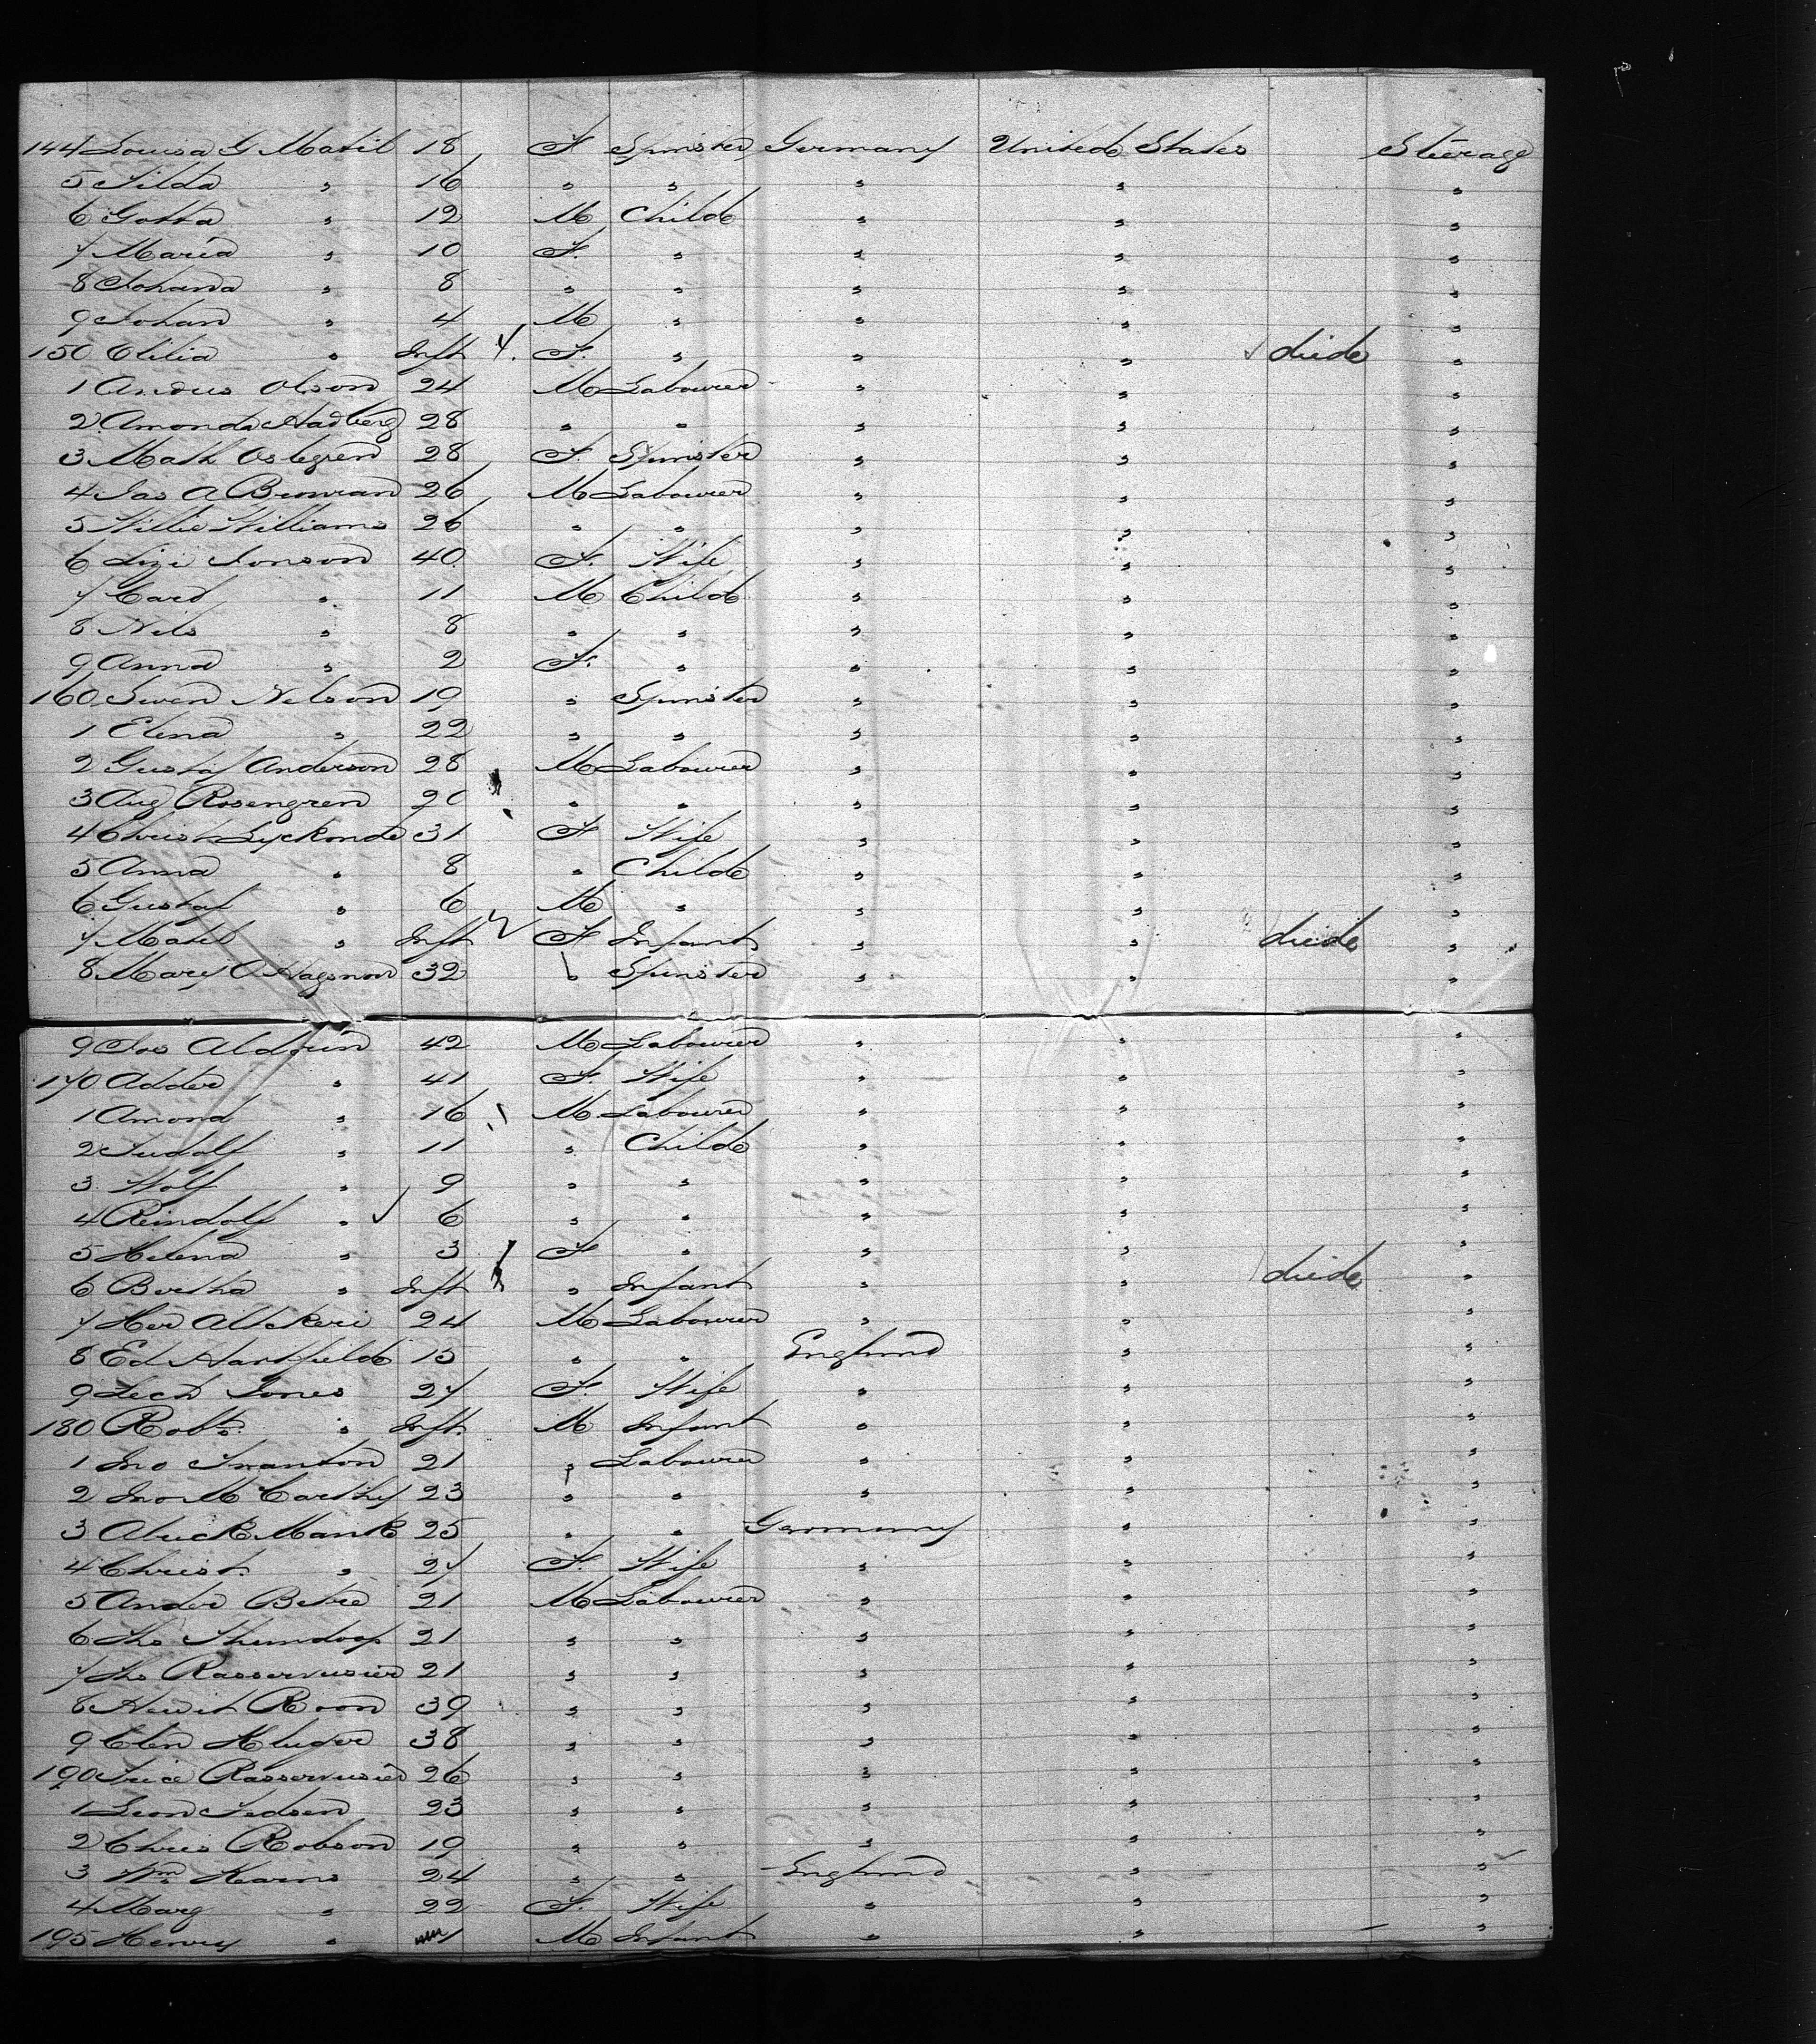 144 Louisa G Matil 18 F Spinster Germany United States Steerage
5 Tilda " 16 " " " " "
6 Gotta " 12 M Child " " "
7 Maria " 10 F. " " " "
8 Johana " 8 " " " " "
9 Johan " 4 M " " " "
150 Clilia " Inft F. " " " died "
1 Andrus Olson 24 M Labourer " " "
2 Amonda Hadberg 28 " " " " "
3 Math Ostegren 28 F. Spinster " " "
4 Jas A Brunran 26 M Labourer " " "
5 Willie Williams 26 " " " " "
6 Lizi Jonson 40 F. Wife " " "
7 Carl " 11 M Child " " "
8 Nils " 8 " " " " "
9 Anna " 2 F. " " " "
160 Swen Nelson 19 " Spinster " " "
1 Elena " 22 " " " " "
2 Gustaf Anderson 28 M Labourer " " "
3 Aug Rosengren 20 " " " " "
4 Christ Lyckonde 31 F Wife " " "
5 Anna " 8 " Child " " "
6 Gustaf " 6 M " " " "
7 Matil " Inft F Infant " " died "
8 Mary Hagsnon 32 " Spinster " " "
9 Jos Aldouin 42 M Labourer " " "
170 Adder " 41 F. Wife " " "
1 Amond " 16 M Labourer " " "
2 Ludolf " 11 " Child " " "
3 Wolf " 9 " " " " "
4 Reindolf " 6 " " " " "
5 Helena " 3 F " " " "
6 Bertha " Inft " Infant " " died "
7 Her Allekeri 24 M Labourer " " "
8 Ed Hartfield 15 " " England " "
9 Jones 27 F. Wife " " "
180 Robt. " Inft. M Infant " " "
1 Jno Swanton 21 " Labourer " " "
2 Jno McCarthy 23 " " " " "
3 Mank 25 " " Germany " "
4 Christ. " 27 F. Wife " " "
5 Ander Betre 21 M Labourer " " "
6 Jho 21 " " " " "
7 Jho Rasservusier 21 " " " " "
8 Room 39 " " " " "
9 Clen Kluger 38 " " " " "
190 Rasservusier 26 " " " " "
1 Leon Tedsen 23 " " " " "
2 Chris Robson 19 " " " " "
3 Wm Kearns 24 " " England " "
4 Marg " 22 F. Wife " " "
195 Henry " 1 M Infant " " "